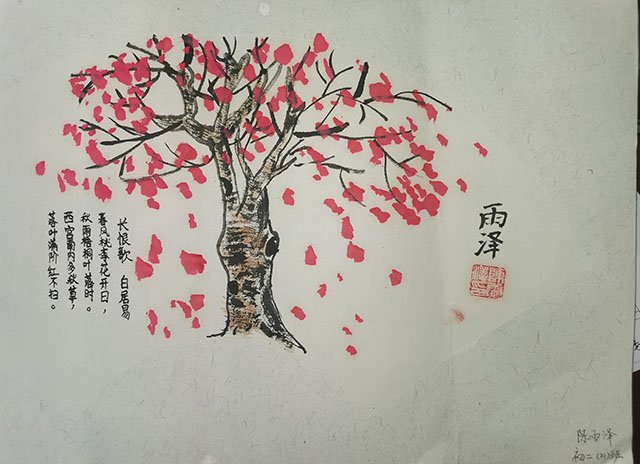 长恨歌 白居易
春风桃李花开日，
秋雨梧桐叶落时。
西宫南内多秋草，
落叶满阶红不扫。
雨泽
陈雨泽